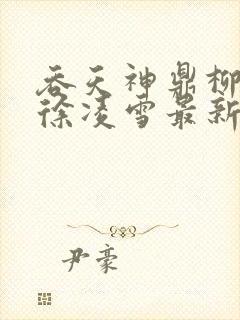 吞天神鼎柳
徐凌雪最新
尹豪